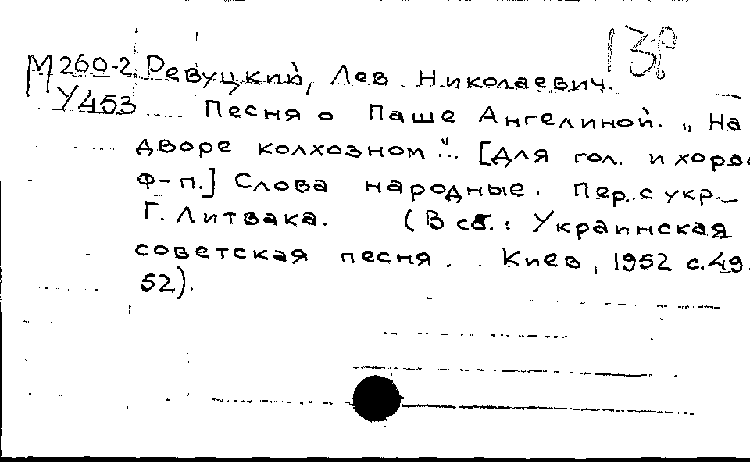 13р
М260-2 Ревуцкий, Лев Николаевич.
У453 Песня о Паше Ангелиной. „На
дворе колхозном“. [Для гол. и хора
ф-п.] Слова народные. Пер. с укр.
Г. Литвака. (В сб.: Украинская
советская песня. Киев, 1952 с.49-
52).